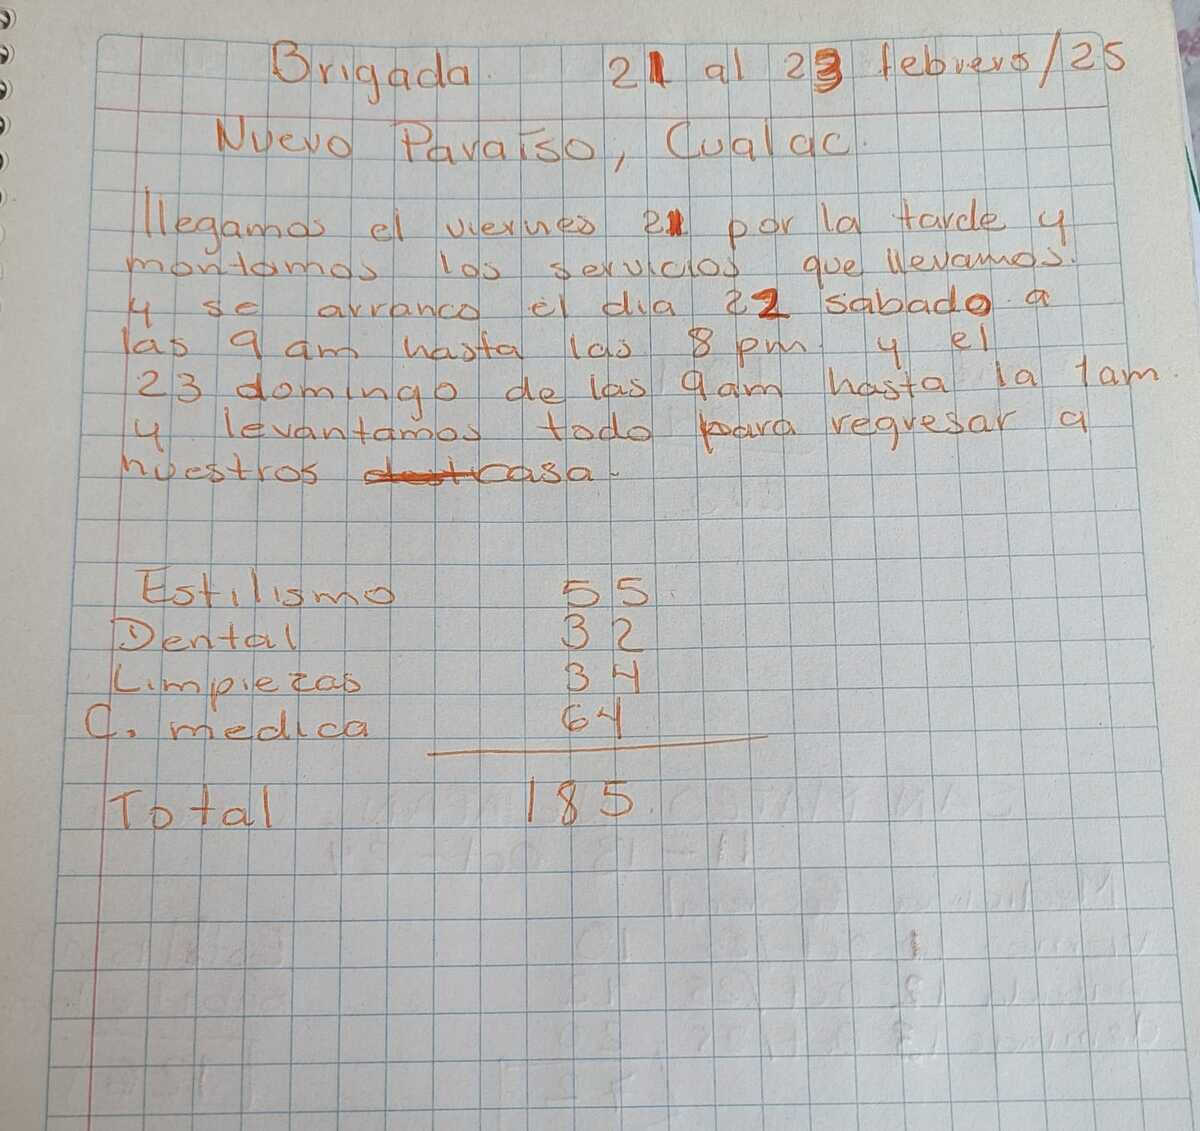 Brigada. 21 al 23 febrero/25
Nuevo Paraíso, Cualac.
llegamos el viernes 21 por la tarde y
montamos los servicios que llevamos.
y se arranco el dia 22 sabado a
las 9 am hasta las 8 pm y el
23 domingo de las 9am hasta la 1am.
y levantamos todo para regresar a
nuestros casa.
Estilismo 55
Dental 32
Limpiezas 34
C. medica 64
Total 185